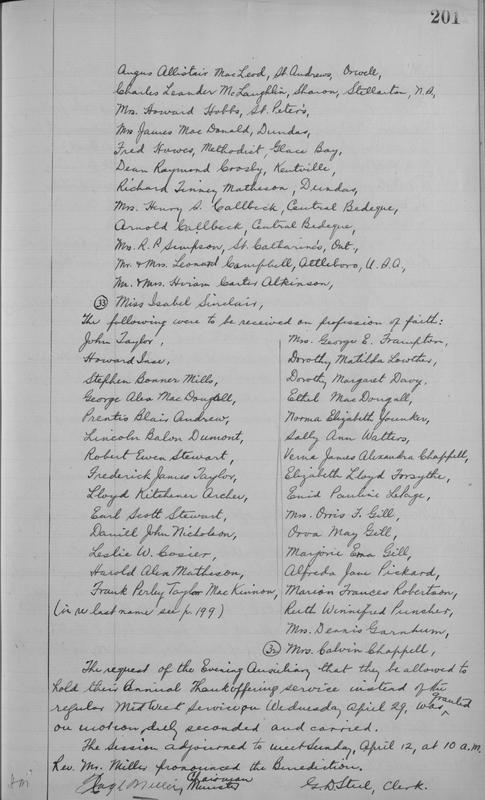 201
Angus Allistair MacLeod, St. Andrews, Orwell,
Charles Leander McLaughlin, Sharon, Stellarton, N.S,
Mrs. Howard Hobbs, St. Peter's,
Mrs James MacDonald, Dundas,
Fred Howes, Methodist Glace Bay,
Dean Raymond Crosby, Kentville,
Richard Finney Matheson, Dundas,
Mrs. Henry S. Callbeck, Central Bedeque,
Arnold Callbeck, Central Bedeque,
Mrs. R.P. Simpson, St. Catharines, Ont,
Mr. & Mrs. Leonard Campbell, Attleboro, U.S.A,
Mr. & Mrs. Hiram Carter Atkinson,
33 Miss Isabel Sinclair,
The following were to be received on profession of faith:
John Taylor,
Howard
Stephen Bonner Mills,
George Alex MacDougall,
Prentis Blair Andrew,
Lincoln Balon Dumont,
Robert Ewen Stewart,
Frederick James Taylor,
Lloyd Kitchener Archer,
Earl Scott Stewart,
Daniel John Nicholson,
Leslie W. Cosier,
Harold Alex Matheson,
Frank Perley Taylor MacKinnon,
(in re last name see p. 199)
Mrs. George E. Frampton,
Dorothy Matilda Lowther,
Dorothy Margaret Davy.
Ethel MacDougall,
Norma Elizabeth Younker,
Sally Ann Walters,
Verna James Alexandra Chappell,
Elizabeth Lloyd Forsythe,
Enid Pauline LePage,
Mrs. Orris F. Gill,
Orva May Gill,
Marjorie Ema Gill,
Alfreda Jane Pickard,
Marion Frances Robertson,
Ruth Winnifred Puncher,
Mrs. Dennis Garnhum,
32 Mrs. Calvin Chappell,
The request of the Evening Auxiliary that they be allowed to
hold their Annual Thankoffering service instead of the
regular MidWeek Service on Wednesday April 29, was granted
on motion, duly seconded and carried.
The Session adjourned to meet Sunday, April 12, at 10 a.m.
Rev. Mr. Miller pronounced the Benediction.
Chairman
Minister
G.D. Steel, Clerk.